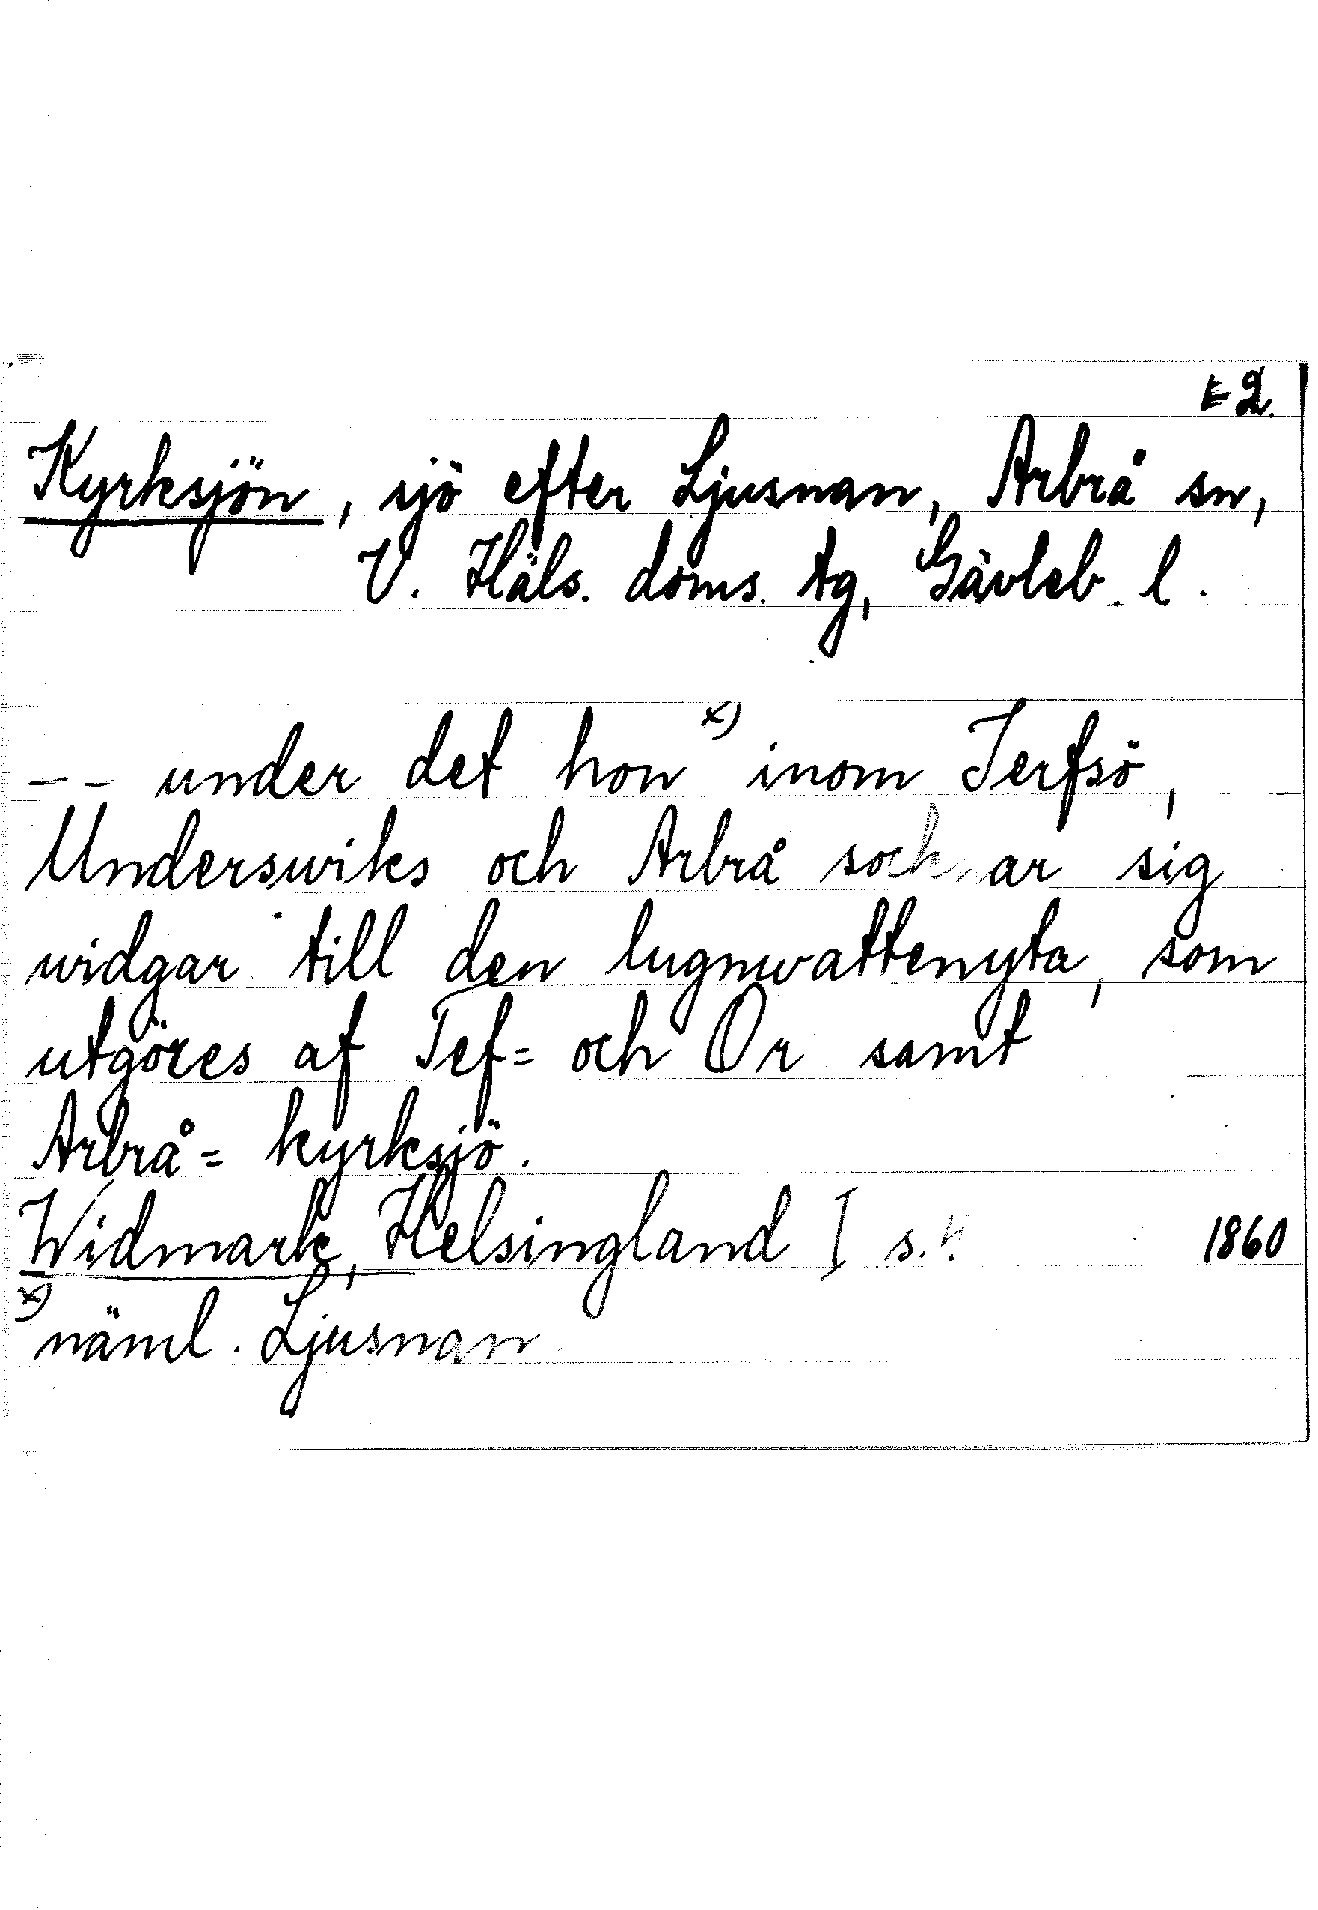 E 2.
Kyrksjön, sjö efter Ljusnan, Arbrå sn,
V. Häls. doms. tg, Gävleb. l.
-- under det hon x) inom Jerfsö,
Underswiks och Arbrå socknar sig
widgar till den lugnwattenyta, som
utgöres af Tef= och Or samt
Arbrå= kyrksjö.
Widmark, Helsingland I s. 1860
x) näml. Ljusnan